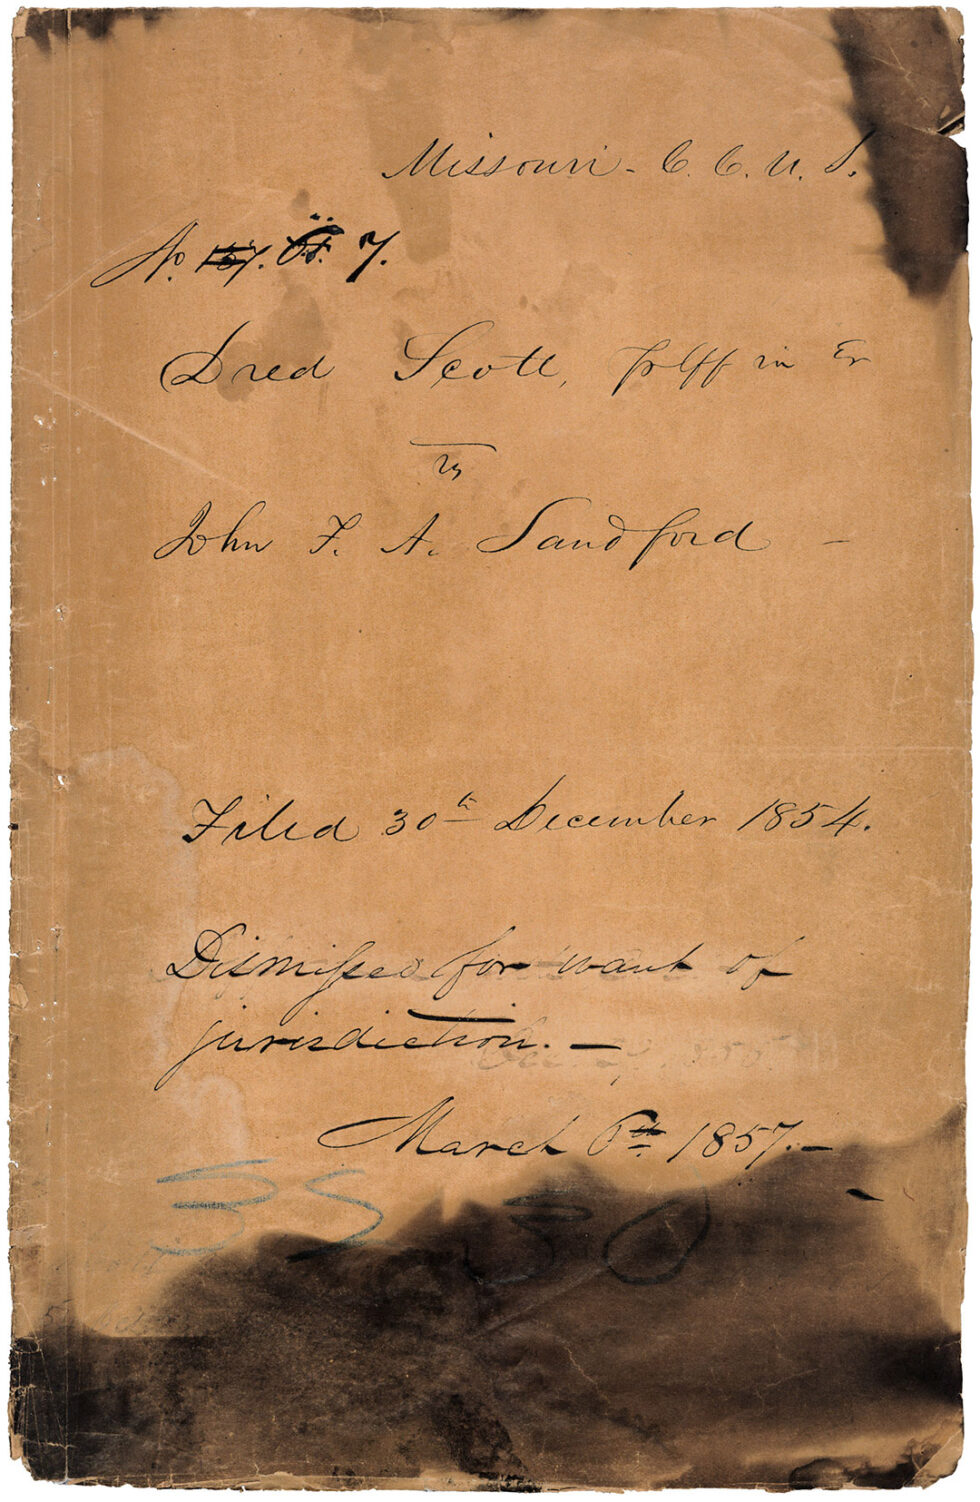 Missouri - C. C. U. S.
No. 137. 7.
Dred Scott, Plff in Er
vs
John F. A. Sandford -
Filed 30th December 1854.
Dismissed for want of
jurisdiction. -
March 6th 1857. -
3530